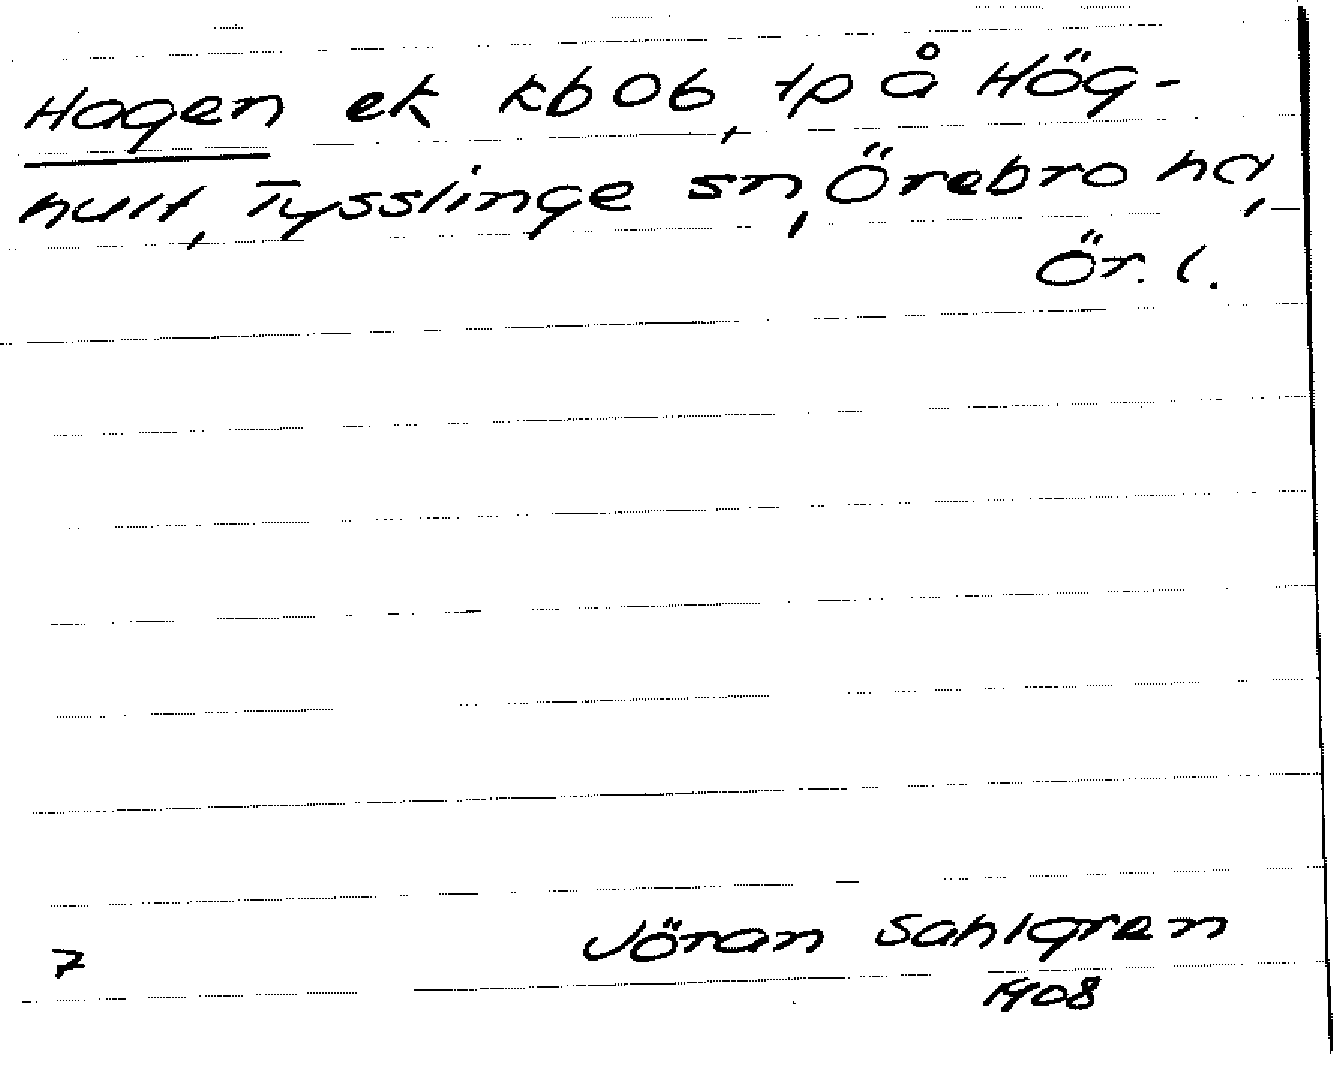 Hagen ek kbOb, tp å Hög-
hult, Tysslinge sn, Örebro hd,
Ör. l.
7
Jöran Sahlgren
1908